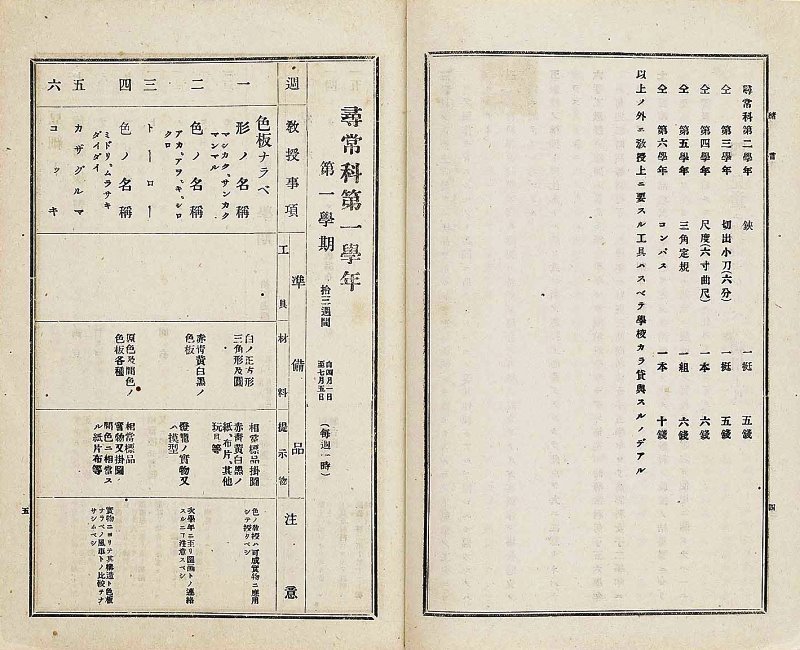 緒言
尋常科第二學年 鋏 一挺 五錢
仝 第三學年 切出小刀(六分) 一挺 五錢
仝 第四學年 尺度(六寸曲尺) 一本 六錢
仝 第五學年 三角定規 一組 六錢
仝 第六學年 コンパス 一本 十錢
以上ノ外ニ敎授上ニ要スル工具ハスベテ學校カラ貸與スルノデアル
四
尋常科第一學年
第一學期 拾三週間 自四月一日 至七月五日 (每週一時)
週 敎授事項 準備品 注意
工具 材料 提示物
一 色板ナラベ
形ノ名稱
マシカク、サンカク
マンマル
白ノ正方形
三角形及圓
相當標品掛圖
赤靑黃白黑ノ
紙、布片、其他
玩具等
色ノ敎授ハ可成實物ニ應用
シテ授クベシ
二 色ノ名稱
アカ、アヲ、キ、シロ
クロ
赤靑黃白黑ノ
色板
三 トーロー
燈籠ノ實物又
ハ模型
次學年ニ至リ圖畫トノ連絡
スルニ注意スベシ
四 色ノ名稱
ミドリ、ムラサキ
ダイダイ
原色及間色ノ
色板各種
相當標品
實物又掛圖
間色ニ相當ス
ル紙片布等
五 カザグルマ
實物ニヨリテ其構造ト色板
ナラベノ風車トノ比較ヲナ
サシムベシ
六 コッキ
五